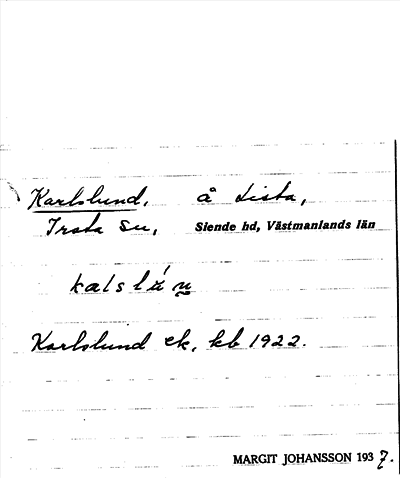 Karlslund, å Lista,
Irsta sn, Siende hd, Västmanlands län
kalslún
Karlslund ek, kb 1922.
MARGIT JOHANSSON 1937.